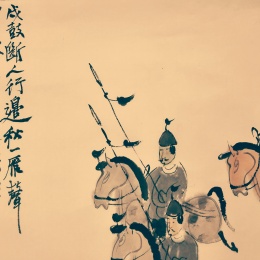 戍鼓斷人行邊秋一雁聲